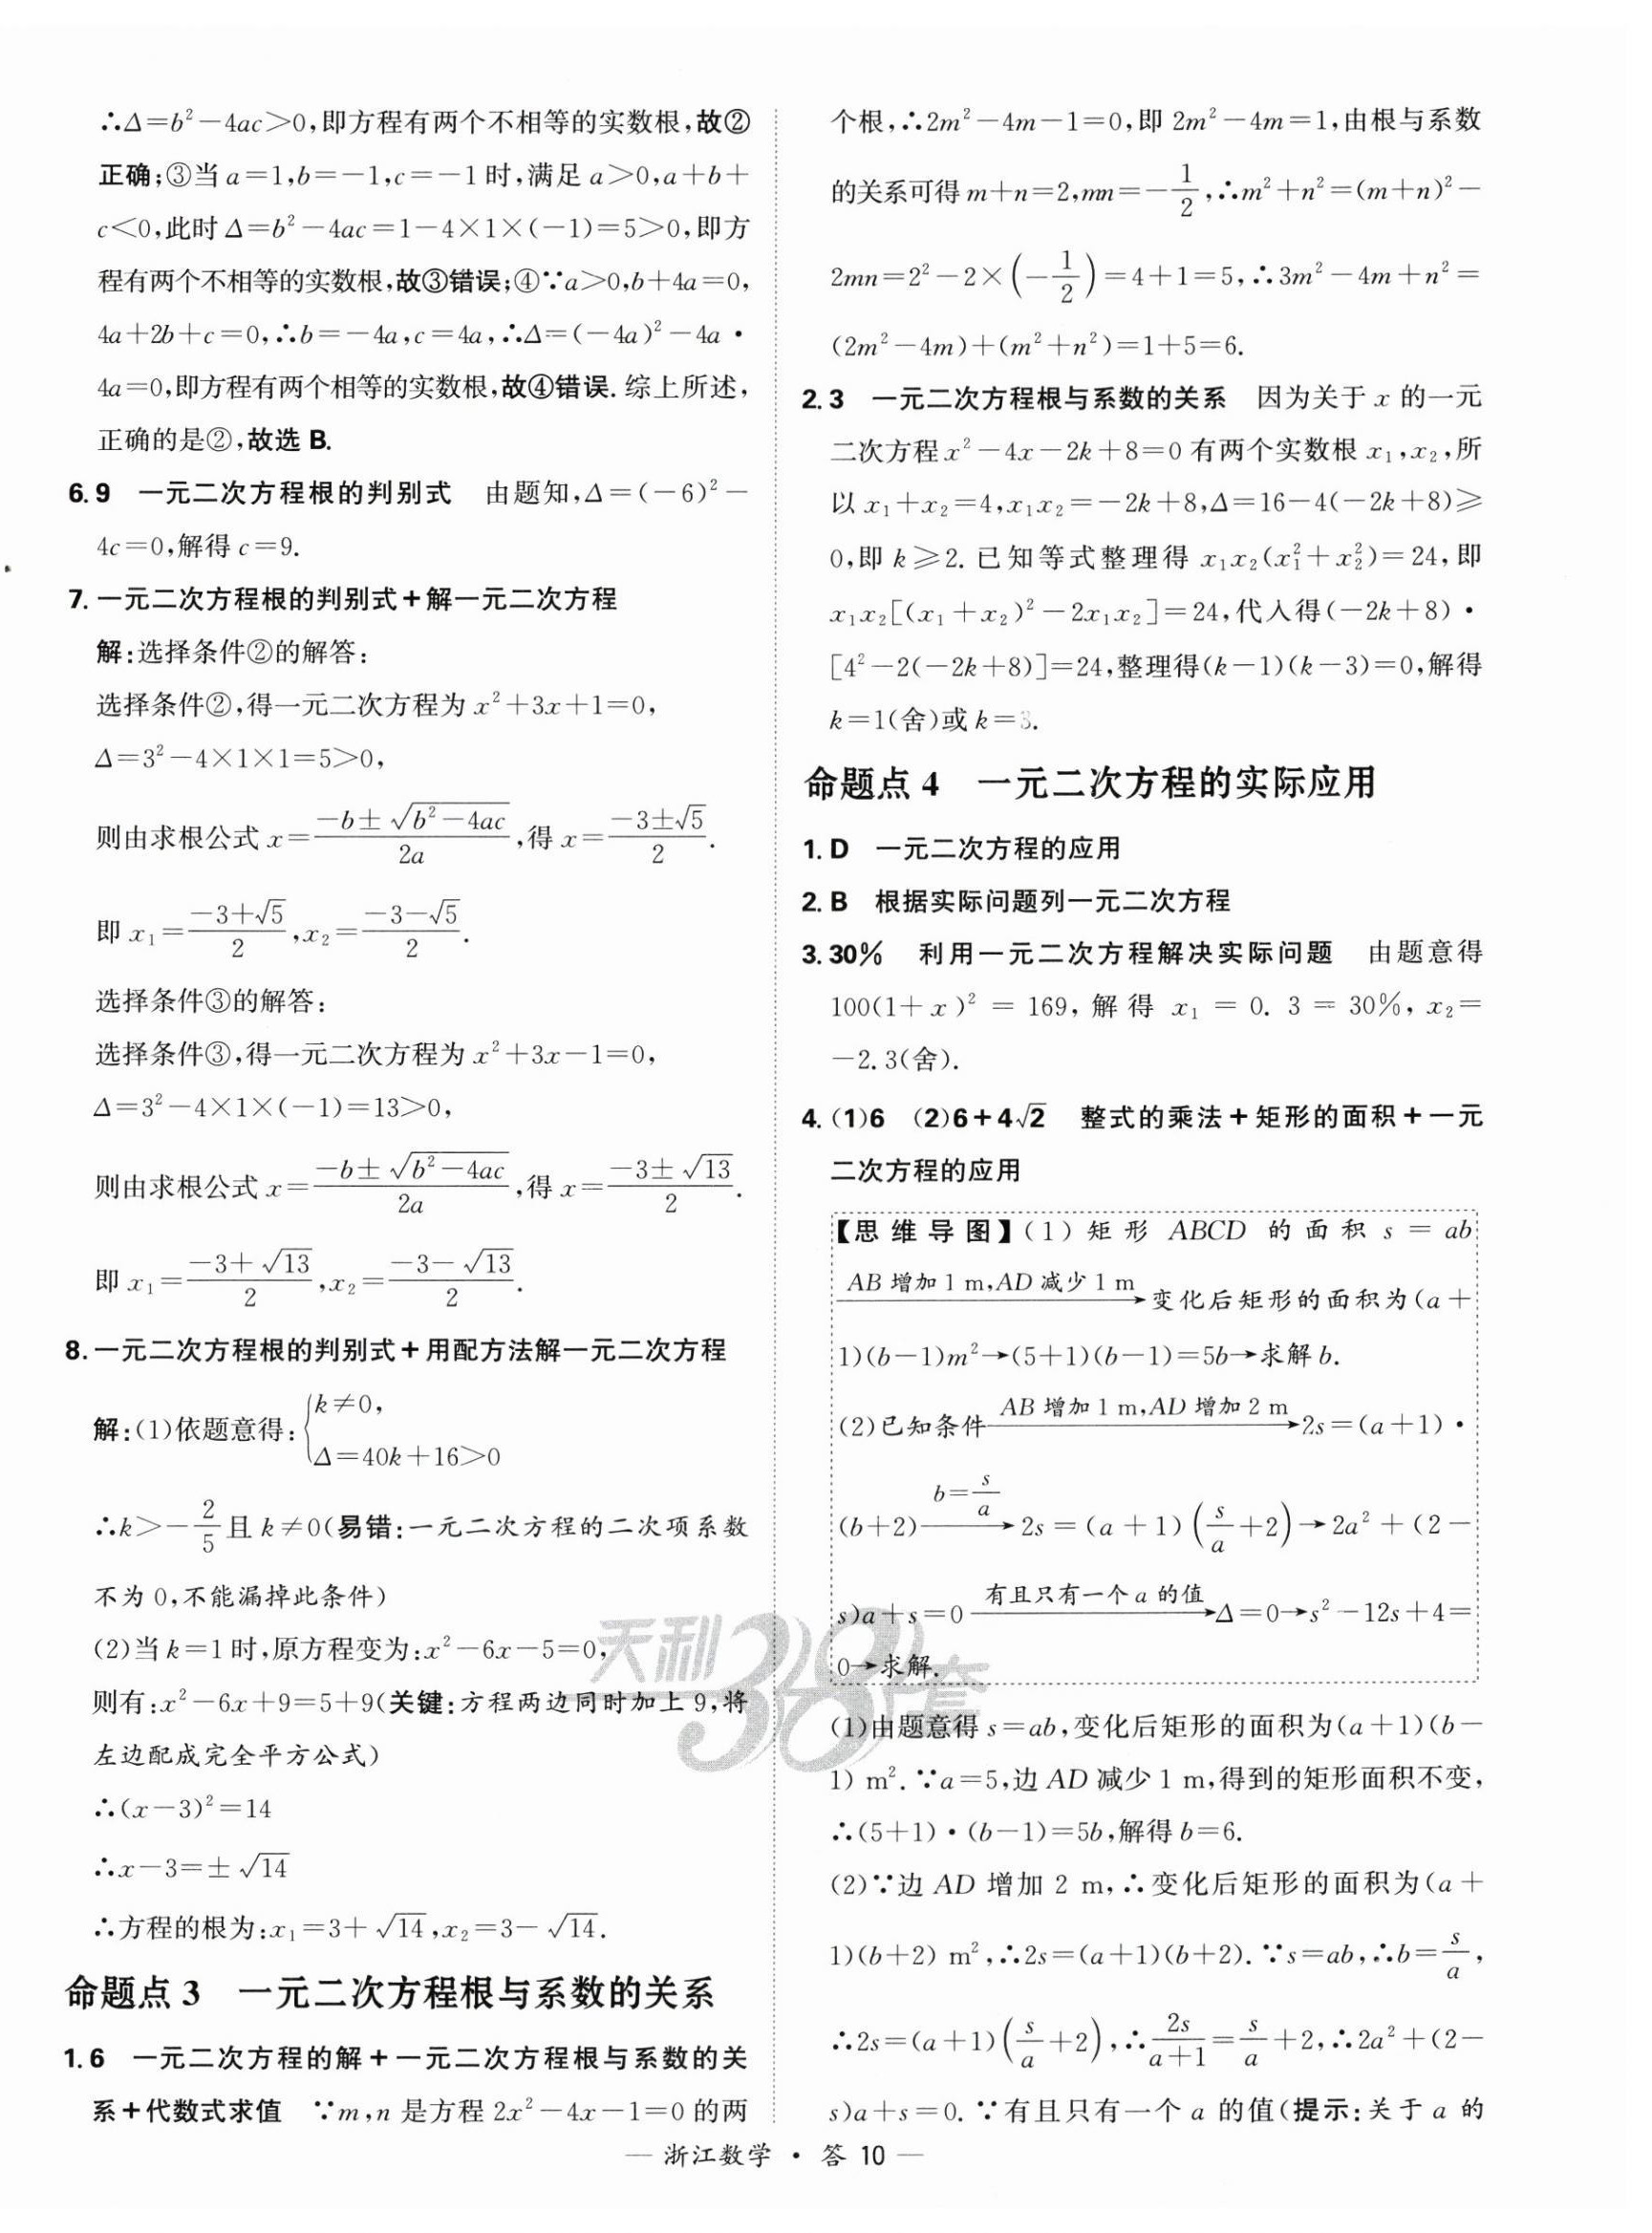 ∴Δ=b²-4ac>0,即方程有两个不相等的实数根,故②
正确;③当a=1,b=-1,c=-1时,满足a>0,a+b+
c<0,此时Δ=b²-4ac=1-4×1×(-1)=5>0,即方
程有两个不相等的实数根,故③错误;④∵a>0,b+4a=0,
4a+2b+c=0,∴b=-4a,c=4a,∴Δ=(-4a)²-4a·
4a=0,即方程有两个相等的实数根,故④错误.综上所述,
正确的是②,故选B.
6.9 一元二次方程根的判别式 由题知,Δ=(-6)²-
4c=0,解得c=9.
7.一元二次方程根的判别式+解一元二次方程
解:选择条件②的解答:
选择条件②,得一元二次方程为x²+3x+1=0,
Δ=3²-4×1×1=5>0,
则由求根公式x=(-b±√(b²-4ac))/(2a),得x=(-3±√5)/2.
即x₁=(-3+√5)/2,x₂=(-3-√5)/2.
选择条件③的解答:
选择条件③,得一元二次方程为x²+3x-1=0,
Δ=3²-4×1×(-1)=13>0,
则由求根公式x=(-b±√(b²-4ac))/(2a),得x=(-3±√13)/2.
即x₁=(-3+√13)/2,x₂=(-3-√13)/2.
8.一元二次方程根的判别式+用配方法解一元二次方程
解:(1)依题意得:{k≠0,
Δ=40k+16>0
∴k>-2/5且k≠0(易错:一元二次方程的二次项系数
不为0,不能漏掉此条件)
(2)当k=1时,原方程变为:x²-6x-5=0,
则有:x²-6x+9=5+9(关键:方程两边同时加上9,将
左边配成完全平方公式)
∴(x-3)²=14
∴x-3=±√14
∴方程的根为:x₁=3+√14,x₂=3-√14.
命题点3 一元二次方程根与系数的关系
1.6 一元二次方程的解+一元二次方程根与系数的关
系+代数式求值 ∵m,n是方程2x²-4x-1=0的两
个根,∴2m²-4m-1=0,即2m²-4m=1,由根与系数
的关系可得m+n=2,mn=-1/2,∴m²+n²=(m+n)²-
2mn=2²-2×(-1/2)=4+1=5,∴3m²-4m+n²=
(2m²-4m)+(m²+n²)=1+5=6.
2.3 一元二次方程根与系数的关系 因为关于x的一元
二次方程x²-4x-2k+8=0有两个实数根x₁,x₂,所
以x₁+x₂=4,x₁x₂=-2k+8,Δ=16-4(-2k+8)≥
0,即k≥2.已知等式整理得x₁x₂(x₁²+x₂²)=24,即
x₁x₂[(x₁+x₂)²-2x₁x₂]=24,代入得(-2k+8)·
[4²-2(-2k+8)]=24,整理得(k-1)(k-3)=0,解得
k=1(舍)或k=3.
命题点4 一元二次方程的实际应用
1.D 一元二次方程的应用
2.B 根据实际问题列一元二次方程
3.30% 利用一元二次方程解决实际问题 由题意得
100(1+x)²=169,解得x₁=0.3=30%,x₂=
-2.3(舍).
4.(1)6 (2)6+4√2 整式的乘法+矩形的面积+一元
二次方程的应用
【思维导图】(1)矩形ABCD的面积s=ab
AB增加1 m,AD减少1 m→变化后矩形的面积为(a+
1)(b-1)m²→(5+1)(b-1)=5b→求解b.
(2)已知条件 AB增加1 m,AD增加2 m→2s=(a+1)·
(b+2) b=s/a→2s=(a+1)(s/a+2)→2a²+(2-
s)a+s=0 有且只有一个a的值→Δ=0→s²-12s+4=
0→求解.
(1)由题意得s=ab,变化后矩形的面积为(a+1)(b-
1) m².∵a=5,边AD减少1 m,得到的矩形面积不变,
∴(5+1)·(b-1)=5b,解得b=6.
(2)∵边AD增加2 m,∴变化后矩形的面积为(a+
1)(b+2) m²,∴2s=(a+1)(b+2).∵s=ab,∴b=s/a,
∴2s=(a+1)(s/a+2),∴2s/(a+1)=s/a+2,∴2a²+(2-
s)a+s=0.∵有且只有一个a的值(提示:关于a的
天利38套
— 浙江数学·答10 —